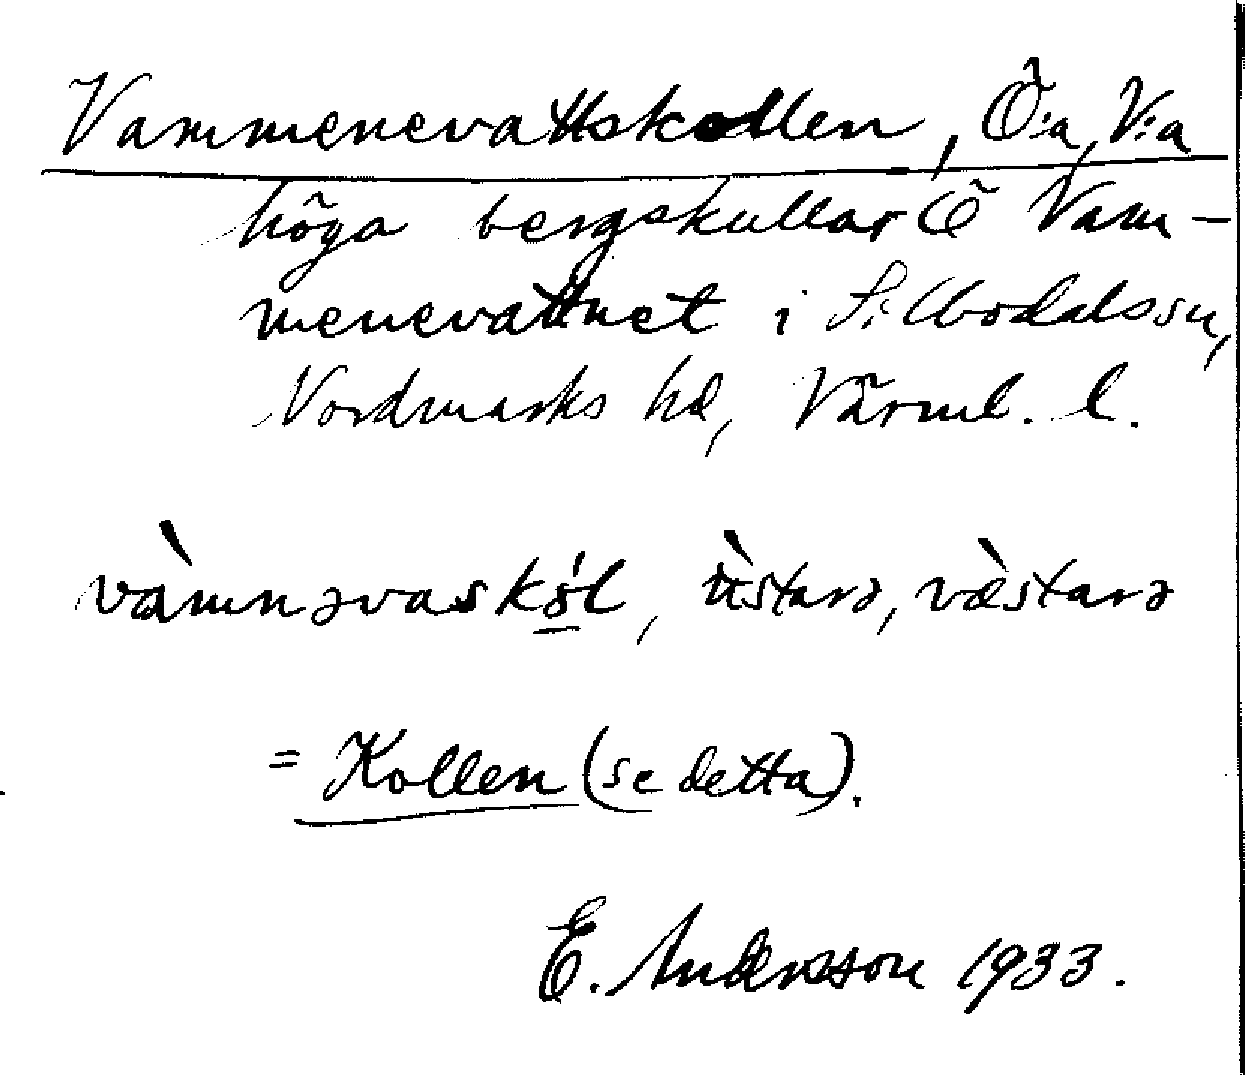 Vammenevattskollen, Ö:a, V:a
höga bergskullar Ö Vam-
menevattnet i Silbodals sn,
Nordmarks hd, Värml. l.
= Kollen (se detta).
E. Andersson 1933.